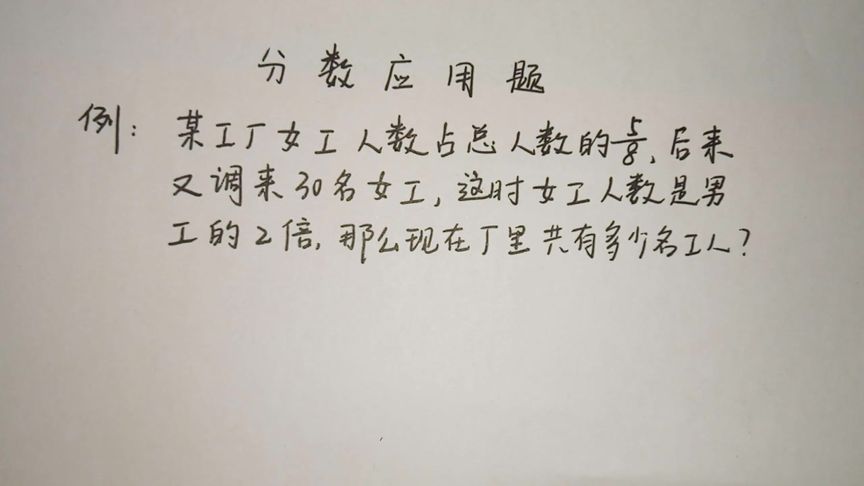 分数应用题
例：某工厂女工人数占总人数的5/8，后来
又调来30名女工，这时女工人数是男
工的2倍，那么现在厂里共有多少名工人？